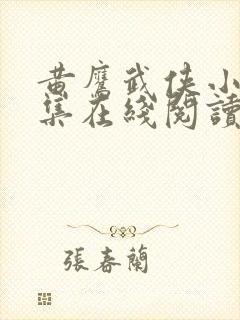 黃鷹武俠小
集在綫閱讀
張春蘭